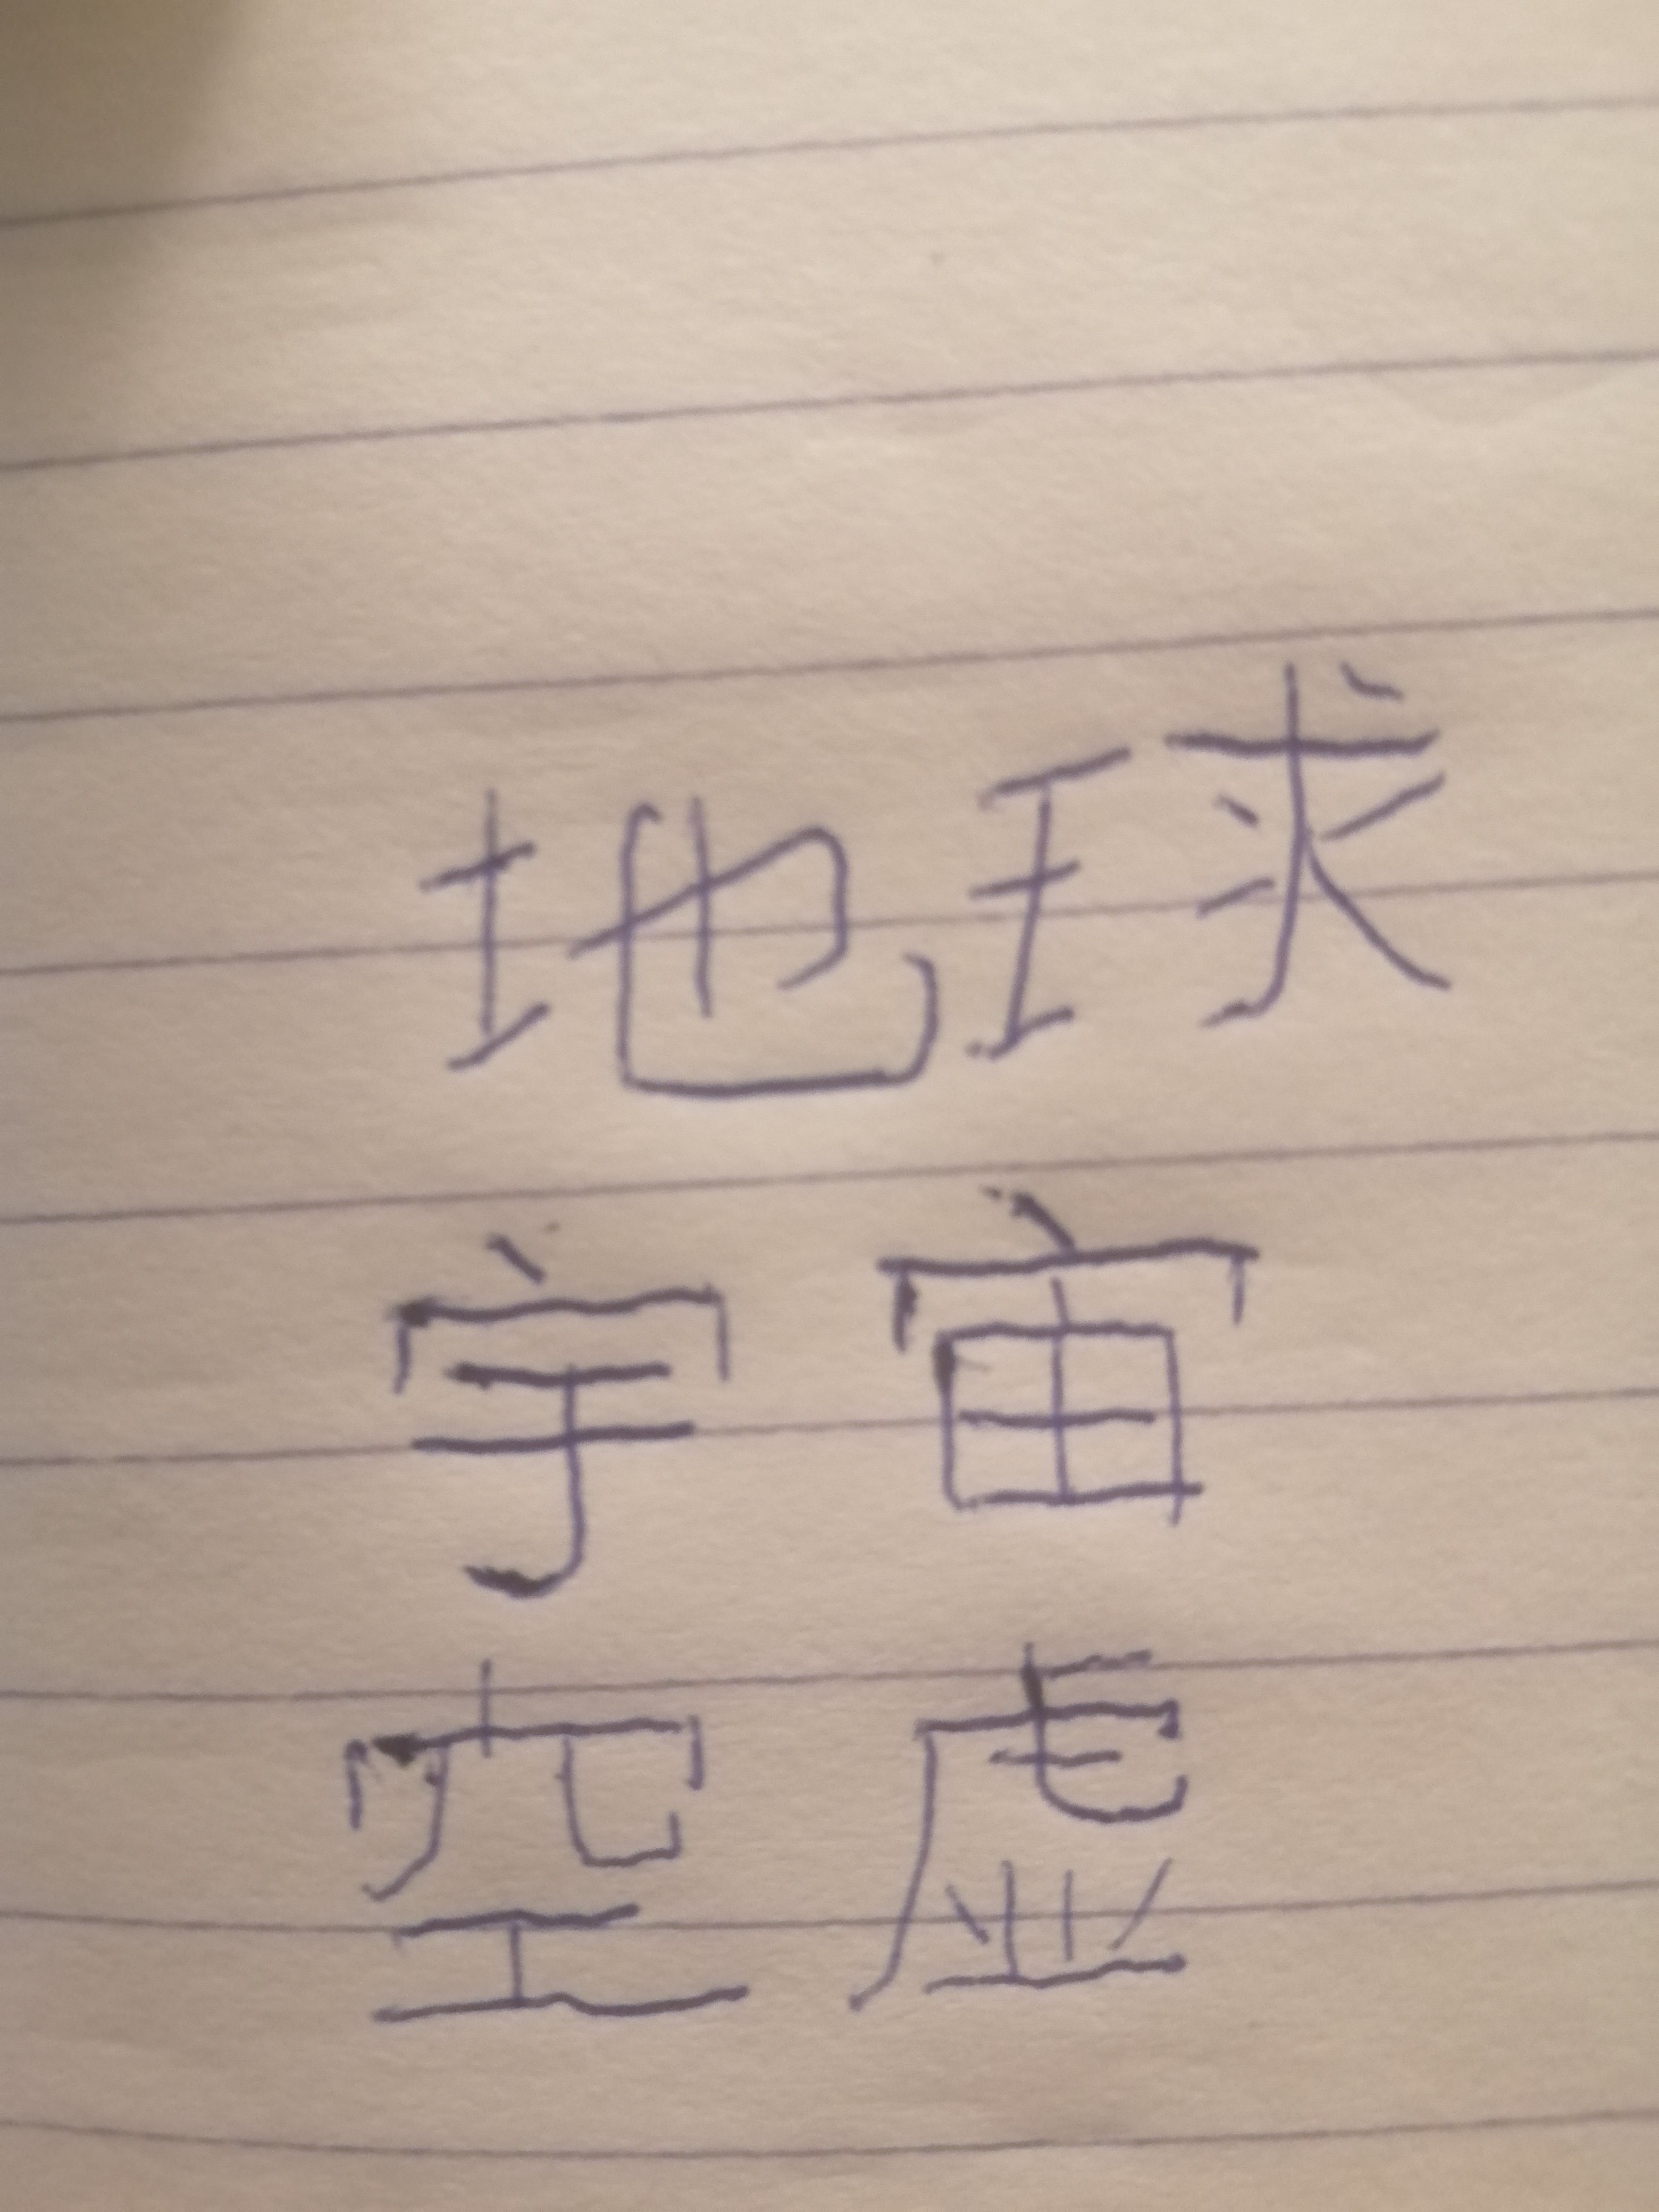 地球
宇宙
空虚